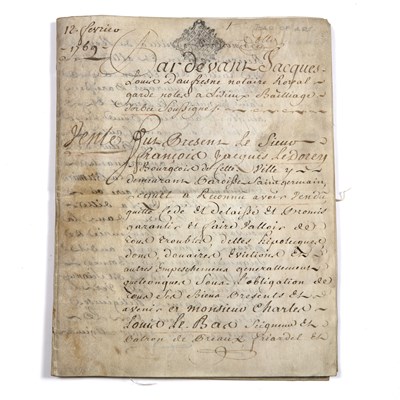 12 fevrier
1769
Par devant Jacques
Louis Daufresne notaire Royal
garde notes a Lisieux Bailliage
Vente
fut Present Le Sieur
François Jacques
Bourgeois de Cette Ville y
demeurant Paroisse Saint germain
Lequel a Reconnu avoir Vendu
quitté Cedé et delaissé et Promis
garantir et faire Valloir de
tous troubles dettes hipoteques
dons douaires Evictions et
autres Empeschemens generallement
quelconques Sous L'obligation de
tous Ses Biens Presents et
avenir et monsieur Charles
Louis Le Bas Seigneur et
Patron de et